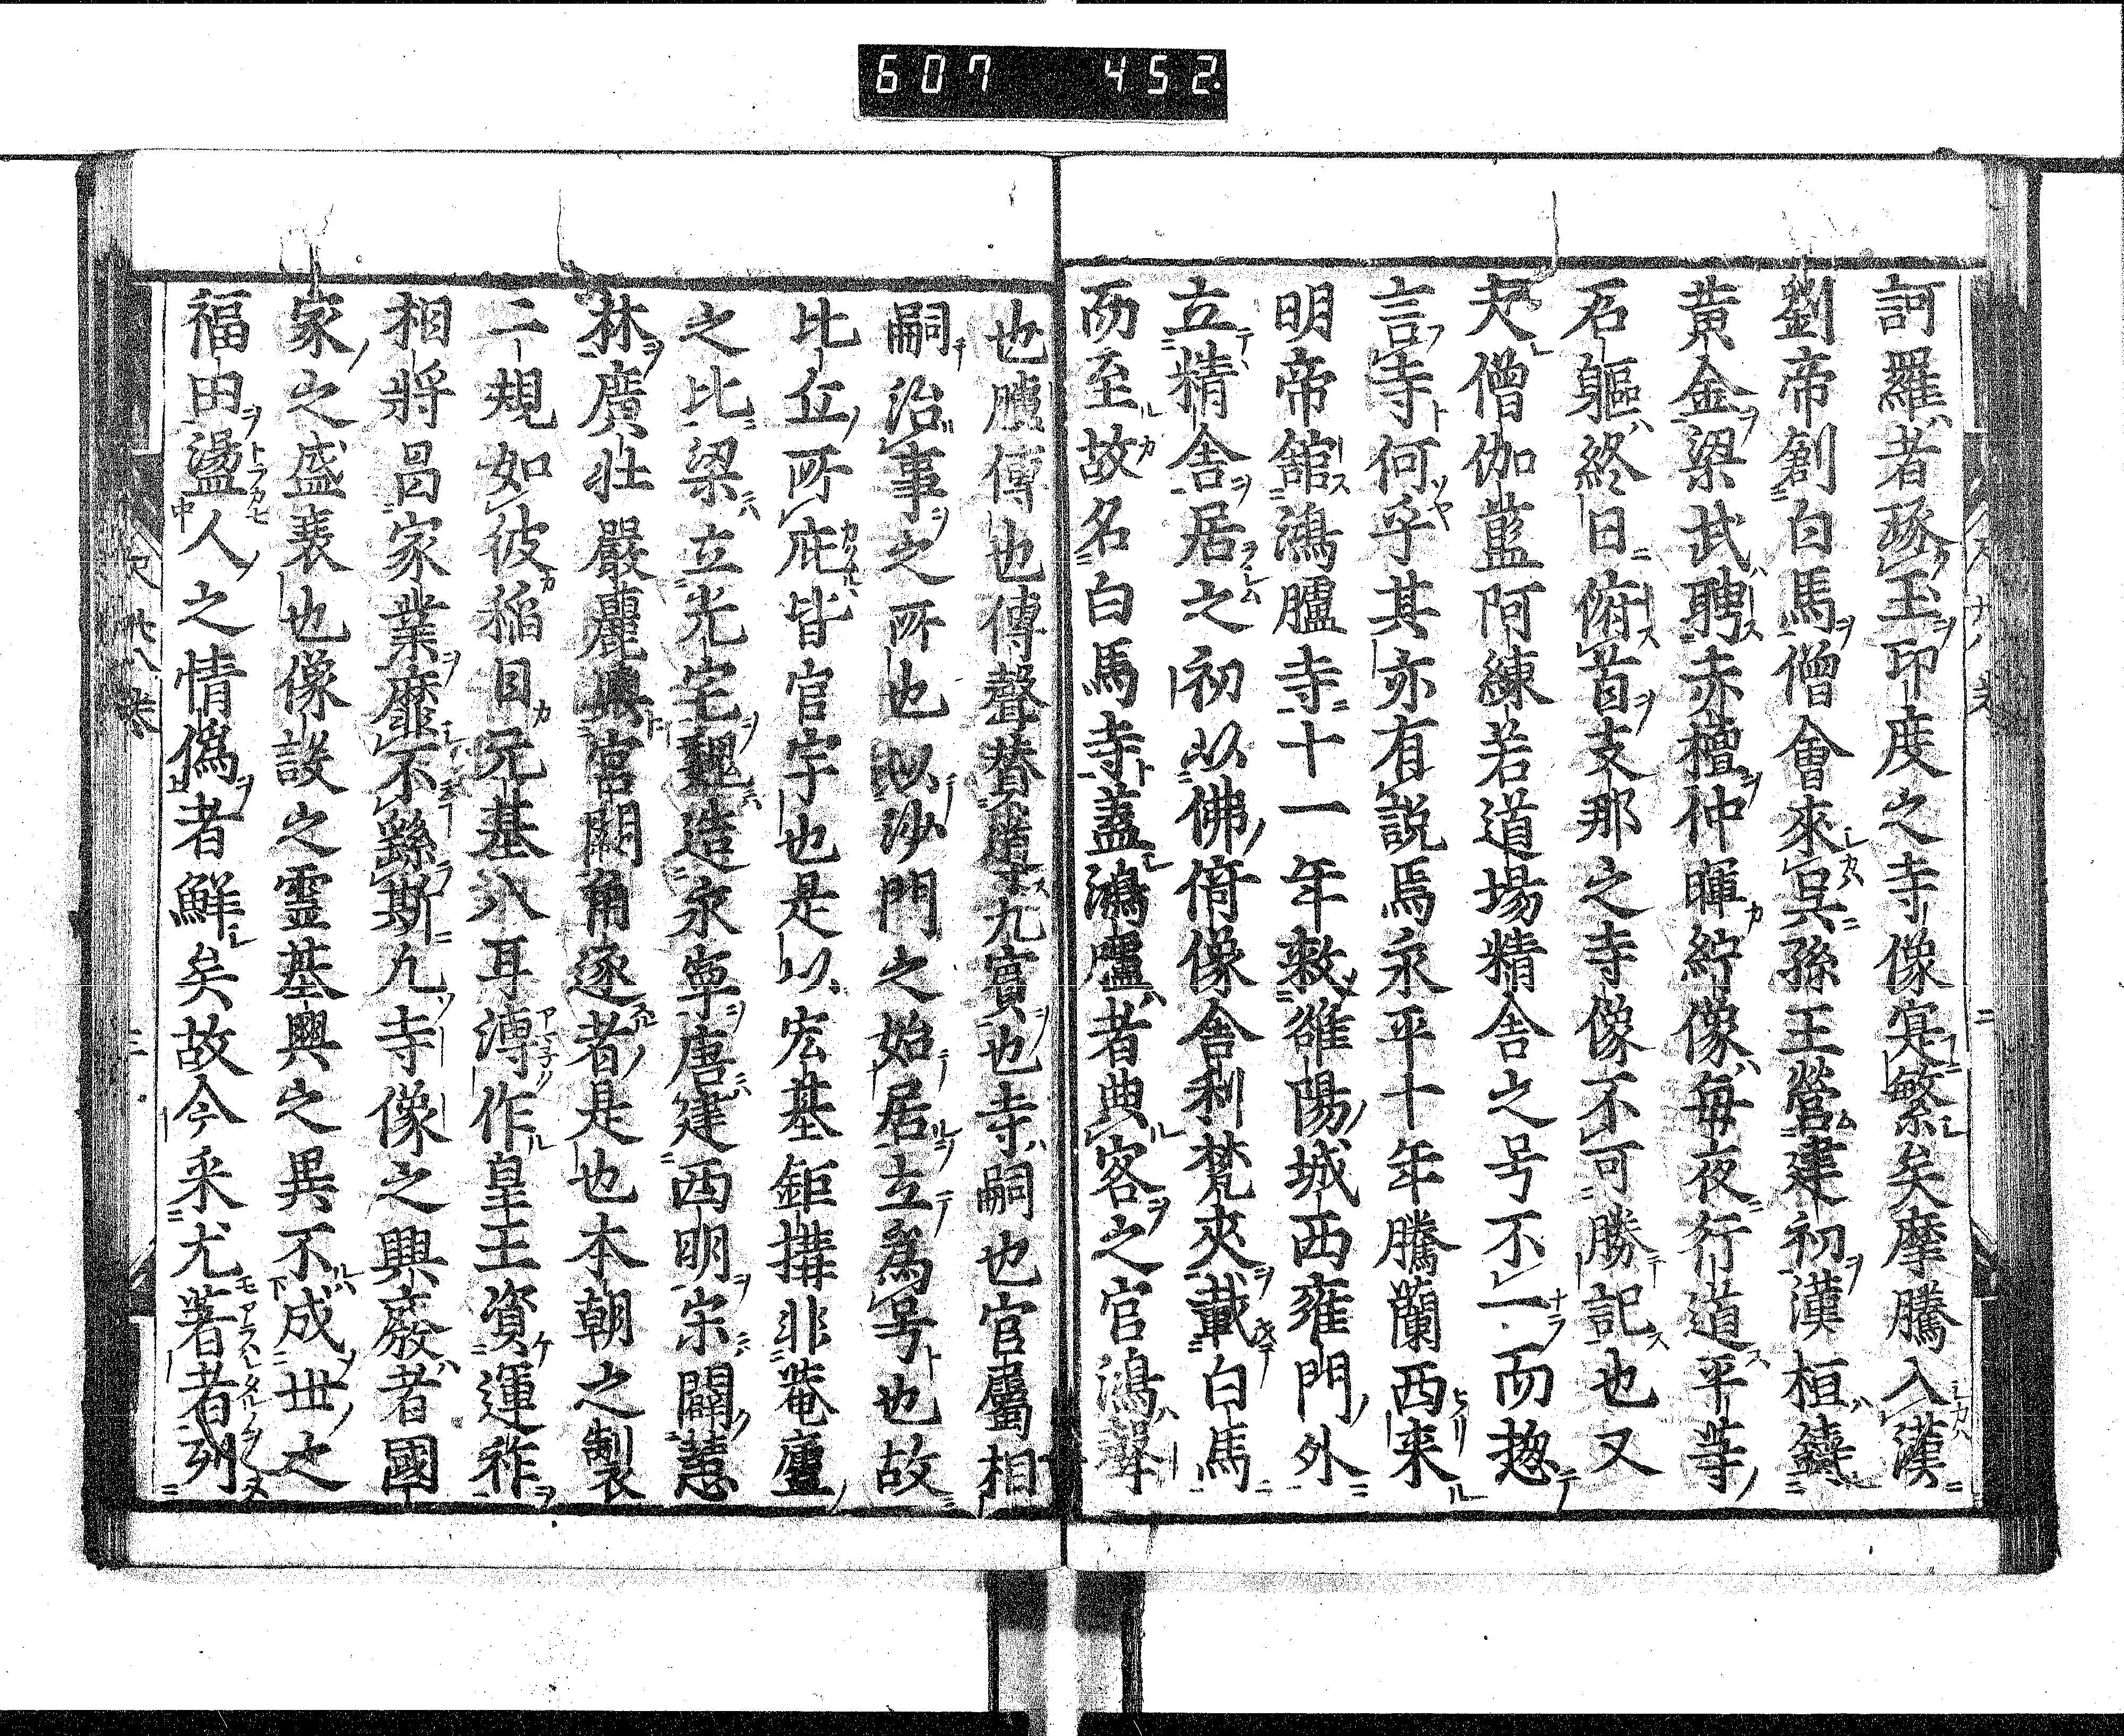 607 452
訶羅者琢玉印度之寺像寔繁矣摩騰入漢
劉帝創白馬僧會來吳孫王營建初漢桓鑄
黃金梁武聘赤檀仲暉紵像每夜行道平等
石軀終日俯首支那之寺像不可勝記也又
夫僧伽藍阿練若道場精舍之号不一而揔
言寺何乎其亦有說焉永平十年騰蘭西來
明帝舘鴻臚寺十一年敕雒陽城西雍門外
立精舍居之初以佛倚像舍利梵夾載白馬
而至故名白馬寺蓋鴻臚者典客之官鴻聲
也臚傳也傳聲賛導九賓也寺嗣也官屬相
嗣治事之所也以沙門之始居立爲号也故
比丘所庇皆官宇也是以宏基鉅搆非菴廬
之比梁立光宅魏造永寧唐建西明宋闢慧
林廣壯嚴麗與宮闕角逐者是也本朝之製
二規如彼稻目元基八耳溥作皇王資運祚
相將昌家業靡不繇斯凢寺像之興廢者國
家之盛衰也像設之靈基興之異不成丗之
福由盪人之情僞者鮮矣故今采尤著者列